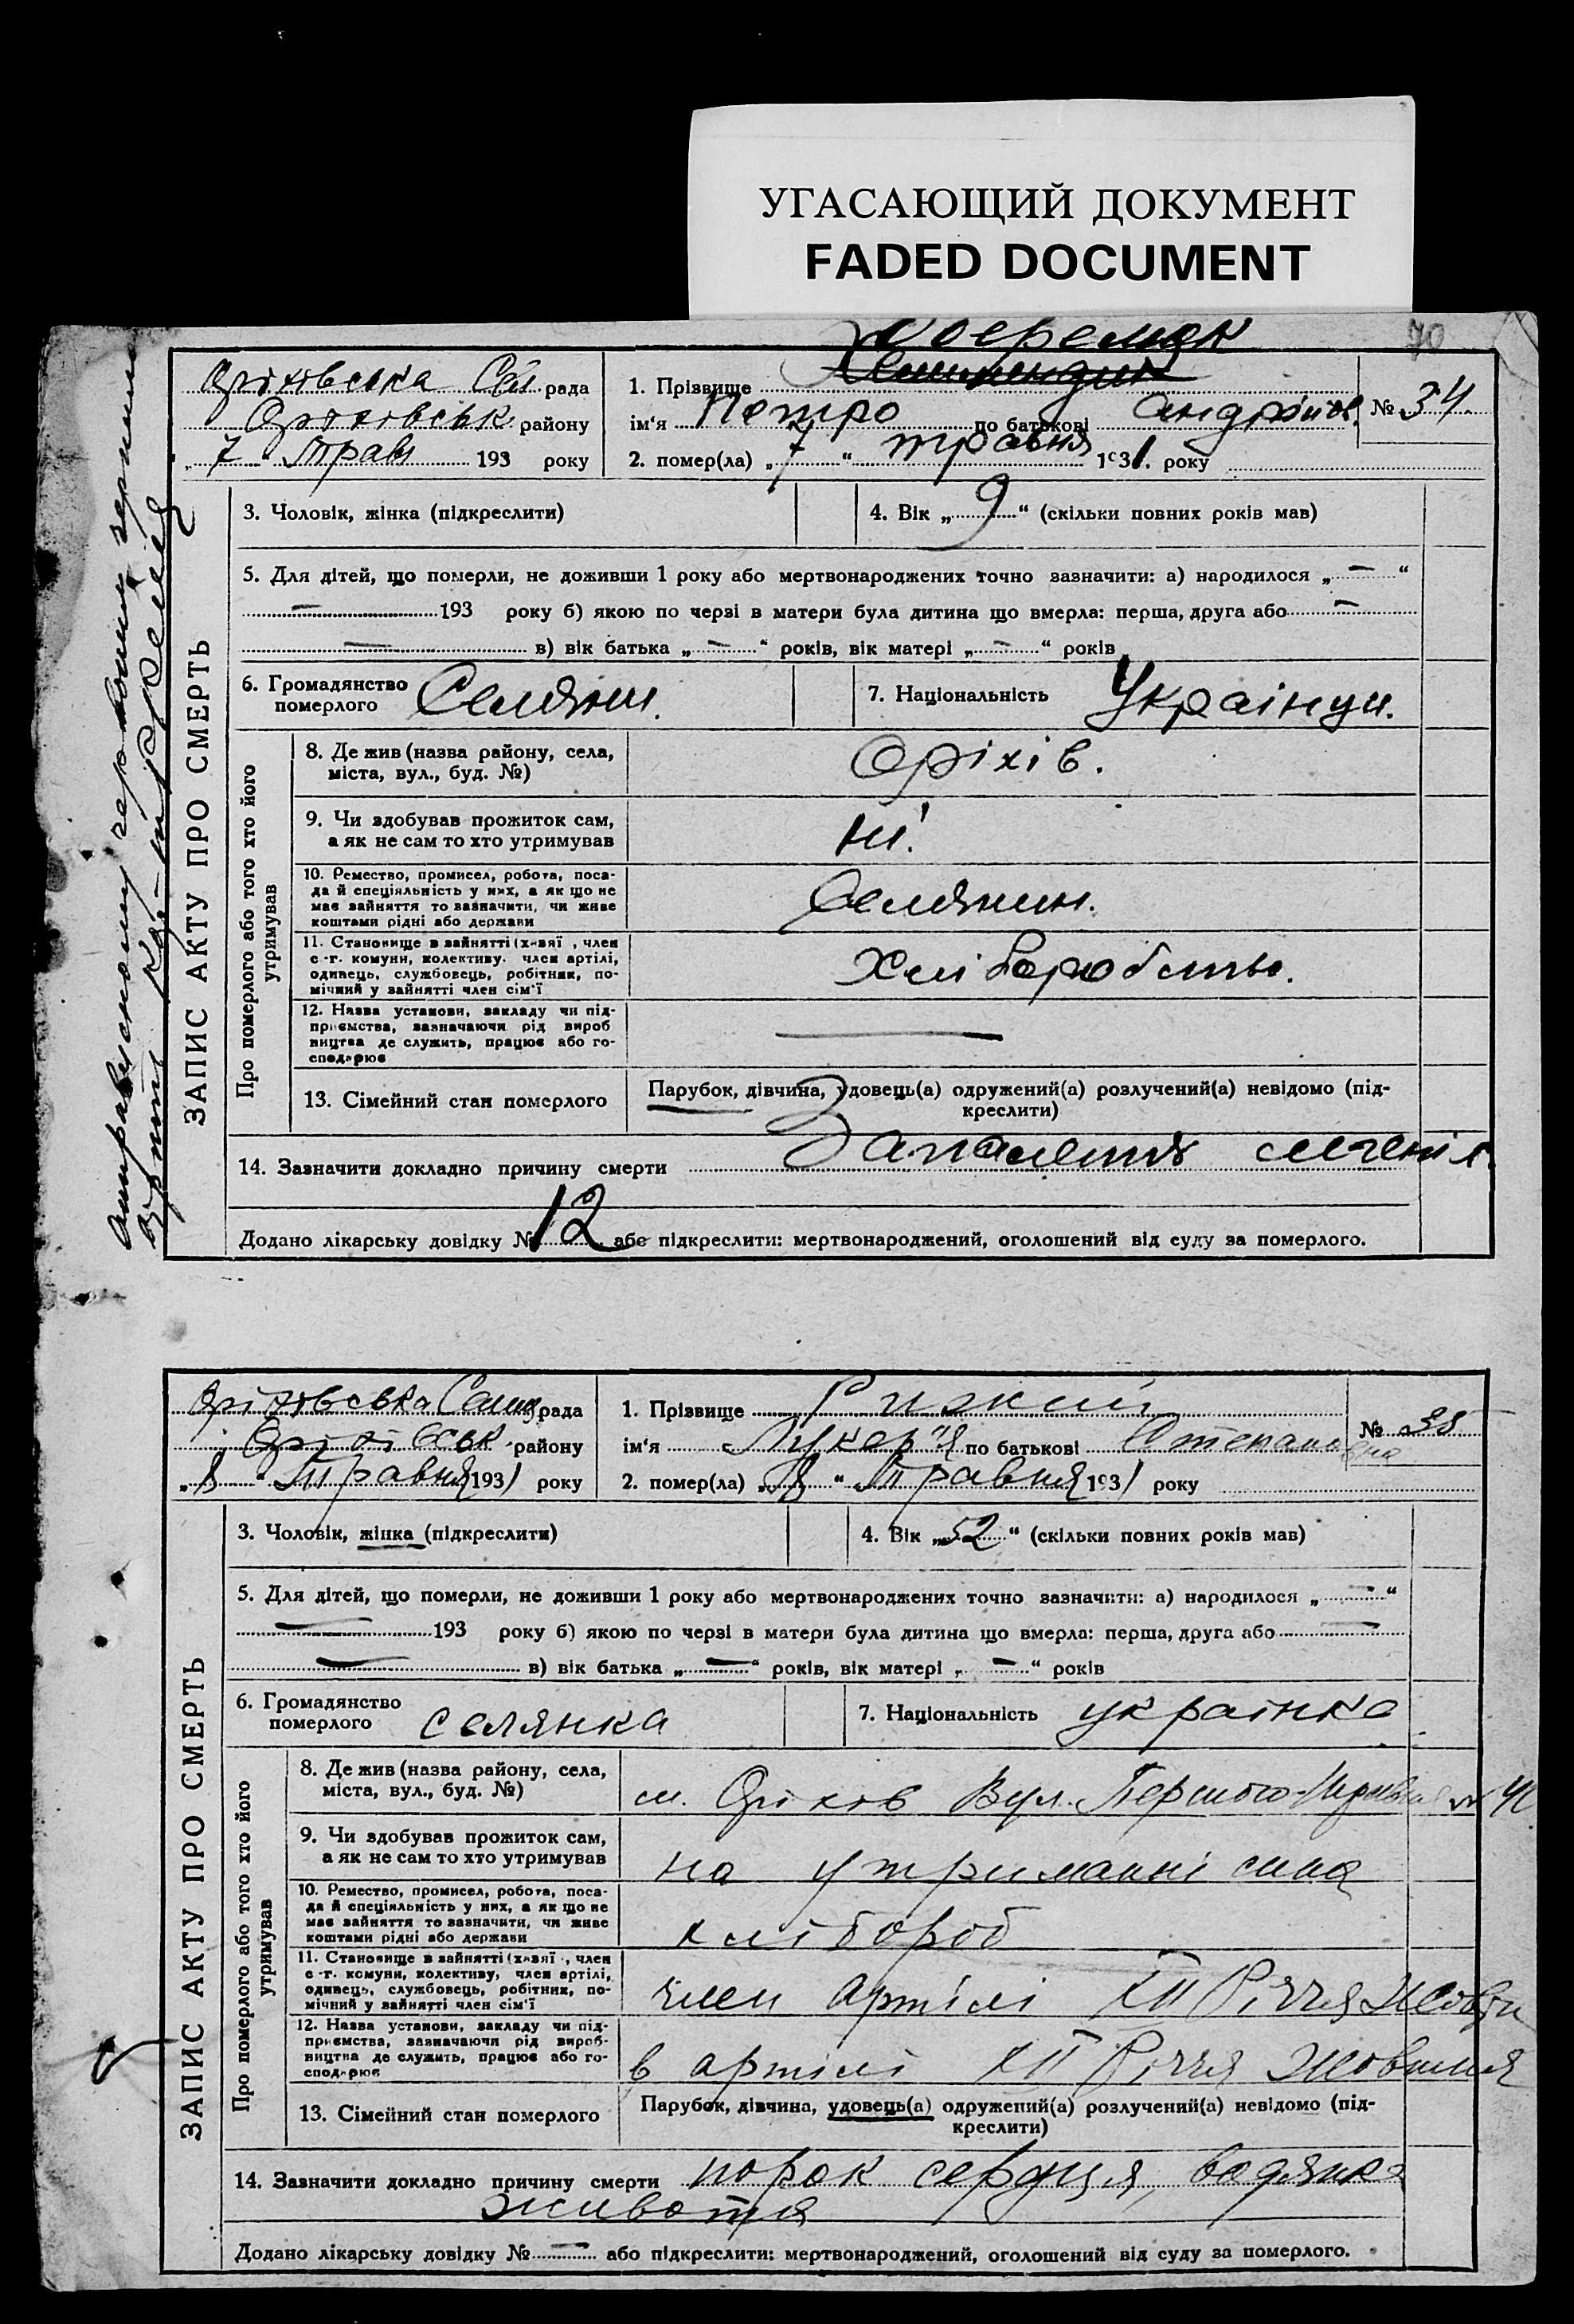 УГАСАЮЩИЙ ДОКУМЕНТ
FADED DOCUMENT
70
ЗАПИС АКТУ ПРО СМЕРТЬ
Оріхівська Сіл рада
Оріхівськ району
„7“ Трав 193 року
1. Прізвище
ім‘я Петро по батькові Андріїов.
2. помер(ла) „7“ травня 1931. року
№ 34
3. Чоловік, жінка (підкреслити)
4. Вік „9“ (скільки повних років мав)
5. Для дітей, що померли, не доживши 1 року або мертвонароджених точно зазначити: а) народилося „—“
— 193 року б) якою по черзі в матери була дитина що вмерла: перша, друга або —
— в) вік батька „—“ років, вік матері „—“ років
6. Громадянство померлого Селянин.
7. Національність Українци.
Про померлого або того хто його утримував
8. Де жив (назва району, села, міста, вул., буд. №) Оріхів.
9. Чи здобував прожиток сам, а як не сам то хто утримував ні.
10. Ремество, промисел, робота, посада й спеціяльність у них, а як що не має зайняття то зазначити, чи живе коштами рідні або держави Селянин.
11. Становище в зайнятті (хазяї, член с.-г. комуни, колективу, член артілі, одинець, службовець, робітник, помічний у зайнятті член сім‘ї Хліборобство.
12. Назва установи, закладу чи підприємства, зазначаючи рід виробництва де служить, працює або господарює —
13. Сімейний стан померлого Парубок, дівчина, удовець(а) одружений(а) розлучений(а) невідомо (підкреслити)
14. Зазначити докладно причину смерти Запалення легенів
Додано лікарську довідку № 12 або підкреслити: мертвонароджений, оголошений від суду за померлого.
ЗАПИС АКТУ ПРО СМЕРТЬ
Оріхівська Селищ рада
Оріхівськ району
„8“ Травня 1931 року
1. Прізвище
ім‘я Лукер'я по батькові Степановна
2. помер(ла) „8“ Травня 1931 року
№ 35
3. Чоловік, жінка (підкреслити)
4. Вік „52“ (скільки повних років мав)
5. Для дітей, що померли, не доживши 1 року або мертвонароджених точно зазначити: а) народилося „—“
— 193 року б) якою по черзі в матери була дитина що вмерла: перша, друга або —
— в) вік батька „—“ років, вік матері „—“ років
6. Громадянство померлого селянка
7. Національність українка
Про померлого або того хто його утримував
8. Де жив (назва району, села, міста, вул., буд. №) м. Оріхов Вул. Першого-Травня №
9. Чи здобував прожиток сам, а як не сам то хто утримував на утриманні сина
10. Ремество, промисел, робота, посада й спеціяльність у них, а як що не має зайняття то зазначити, чи живе коштами рідні або держави хлібороб
11. Становище в зайнятті (хазяї, член с.-г. комуни, колективу, член артілі, одинець, службовець, робітник, помічний у зайнятті член сім‘ї член артілі XII Річчя Жовтн
12. Назва установи, закладу чи підприємства, зазначаючи рід виробництва де служить, працює або господарює в артілі XII Річчя Жовтня
13. Сімейний стан померлого Парубок, дівчина, удовець(а) одружений(а) розлучений(а) невідомо (підкреслити)
14. Зазначити докладно причину смерти порок сердця, водянка
живота
Додано лікарську довідку № — або підкреслити: мертвонароджений, оголошений від суду за померлого.